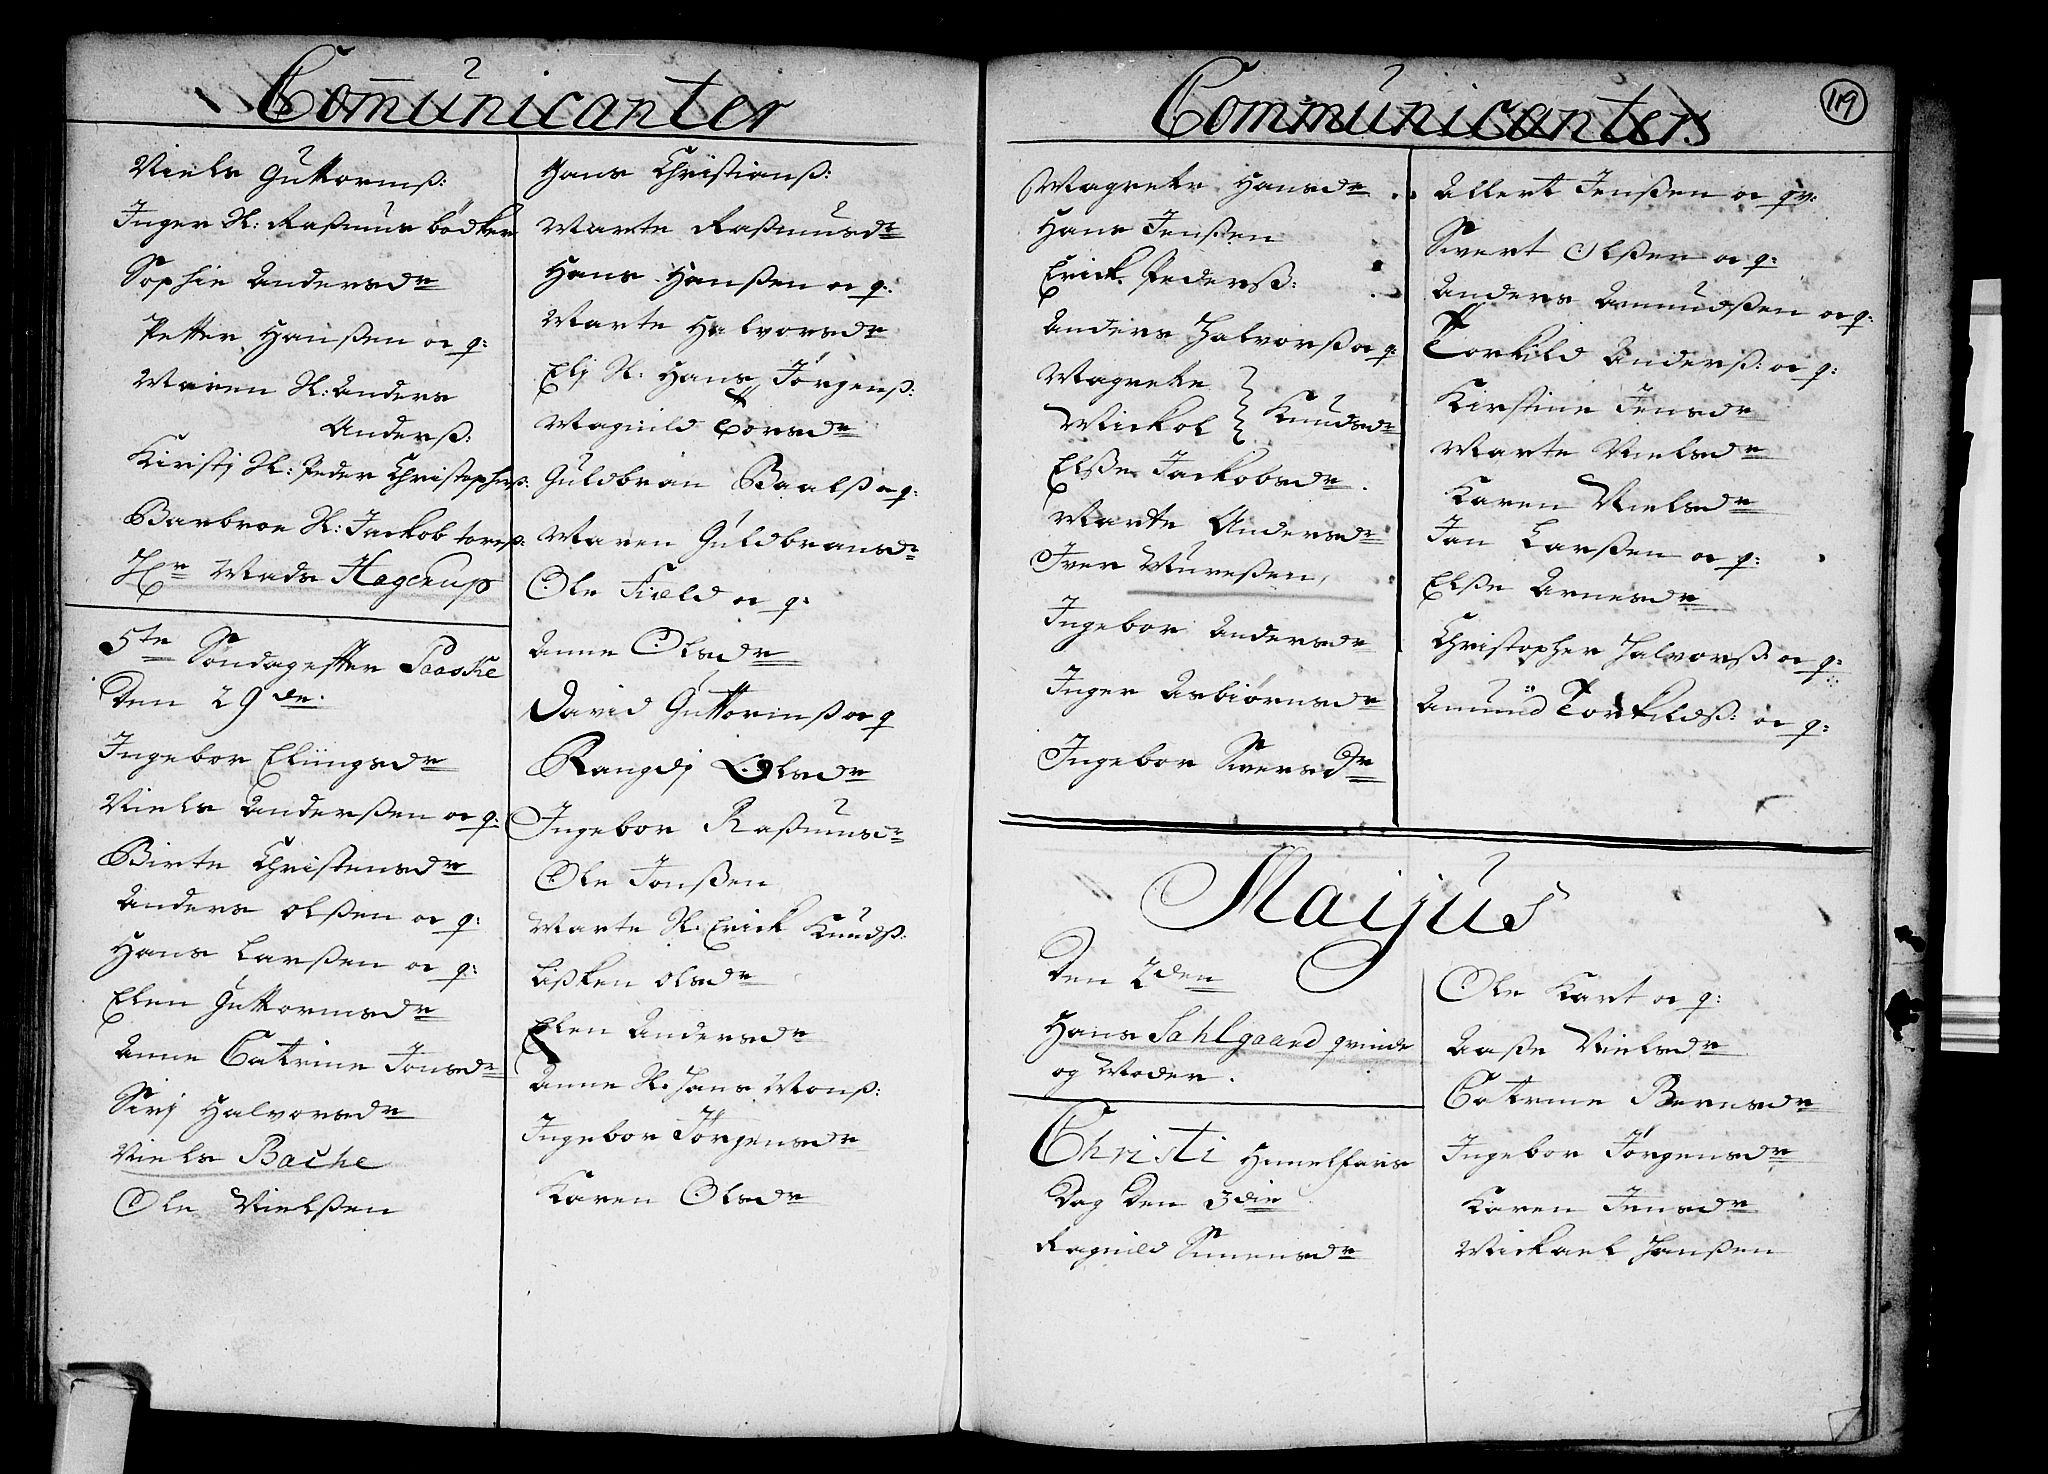 Comunicanter
Niels Guttormß:
Inger H: Raßmus bödker
Sophie Andersdr
Petter Hanßen oc q:
Maren H: Anders
Anderß:
Kirstj H: Peder Christopherß:
Barbroe H: Jackob torß:
Hr Mads Hagerup
5te Söndag efter Paaske
Den 29de.
Ingebor Elingsdr
Niels Anderßen oc q:
Birte Christensdr
Anders olßen oc q:
Hans Larßen oc q:
Elen Guttormsdr
Anne Catrine Jonsdr
Sirj Halvorsdr
Niels Bache
Ole Nielßen
Hans Christianß:
Marte Raßmusdr
Hans Hanßen oc q:
Marte Halvorsdr
Elj H: Hans Jörgenß:
Magnild Torsdr
Guldbran Baalß oc q:
Maren Guldbransdr
Ole Field oc q:
Anne Olsdr
David Guttormß oc q
Rangdj Olsdr
Ingebor Raßmusdr
Ole Jonßen
Marte H: Erick Knudß:
Lißken olsdr
Elen Andersdr
Anne H: Hans Monß:
Ingebor Jörgensdr
Karen Olsdr
Communicanters
119
Magrete Hansdr
Hans Jenßen
Erick Pederß:
Anders Halvorß oc q:
Magrete
Mickol } Knudsdr
Elße Jackobsdr.
Marte Andersdr
Iver Mureßen
Ingebor Andersdr
Inger Asbiörnsdr
Ingebor Siversdr
Allert Jenßen oc qv:
Sivert Olßen oc q:
Anders Amundßen oc q:
Torkild Anderß: oc q:
Kirstine Jensdr
Marte Nielsdr
Karen Nielsdr
Jan Larßen oc q:
Elße Arnesdr
Christopher Halvorß: oc q:
Amund Torkildß: oc q:
Maijus
Den 2den
Hans Sahlgaard qvinde
og Moder.
Christi Himelfars
Dag Den 3die
Ragnild Simensdr
Ole Kart oc q:
Aaße Nielsdr
Catrine Bernsdr
Ingebor Jörgensdr
Karen Jensdr
Mickael Hanßen